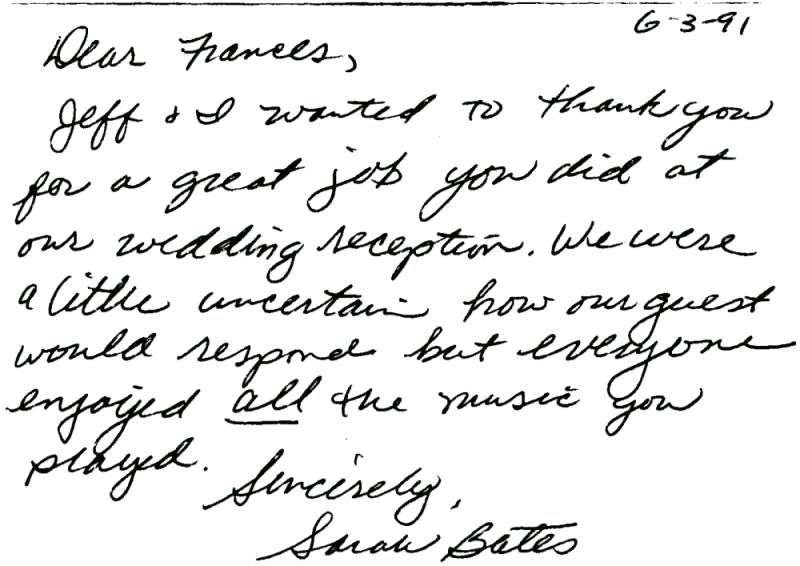 6-3-91
Dear Frances,
Jeff & I wanted to thank you
for a great job you did at
our wedding reception. We were
a little uncertain how our guest
would respond but everyone
enjoyed all the music you
played.
Sincerely,
Sarah Bates